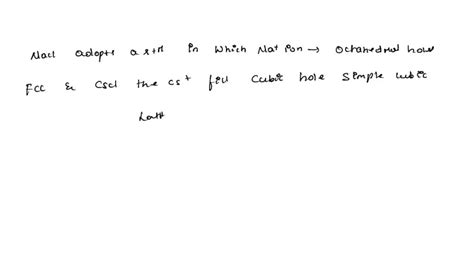 Nacl adopts a str in which Na+ ion → octahedral hole
FCC & Cscl the cs+ fill cubic hole simple cubic
Latt